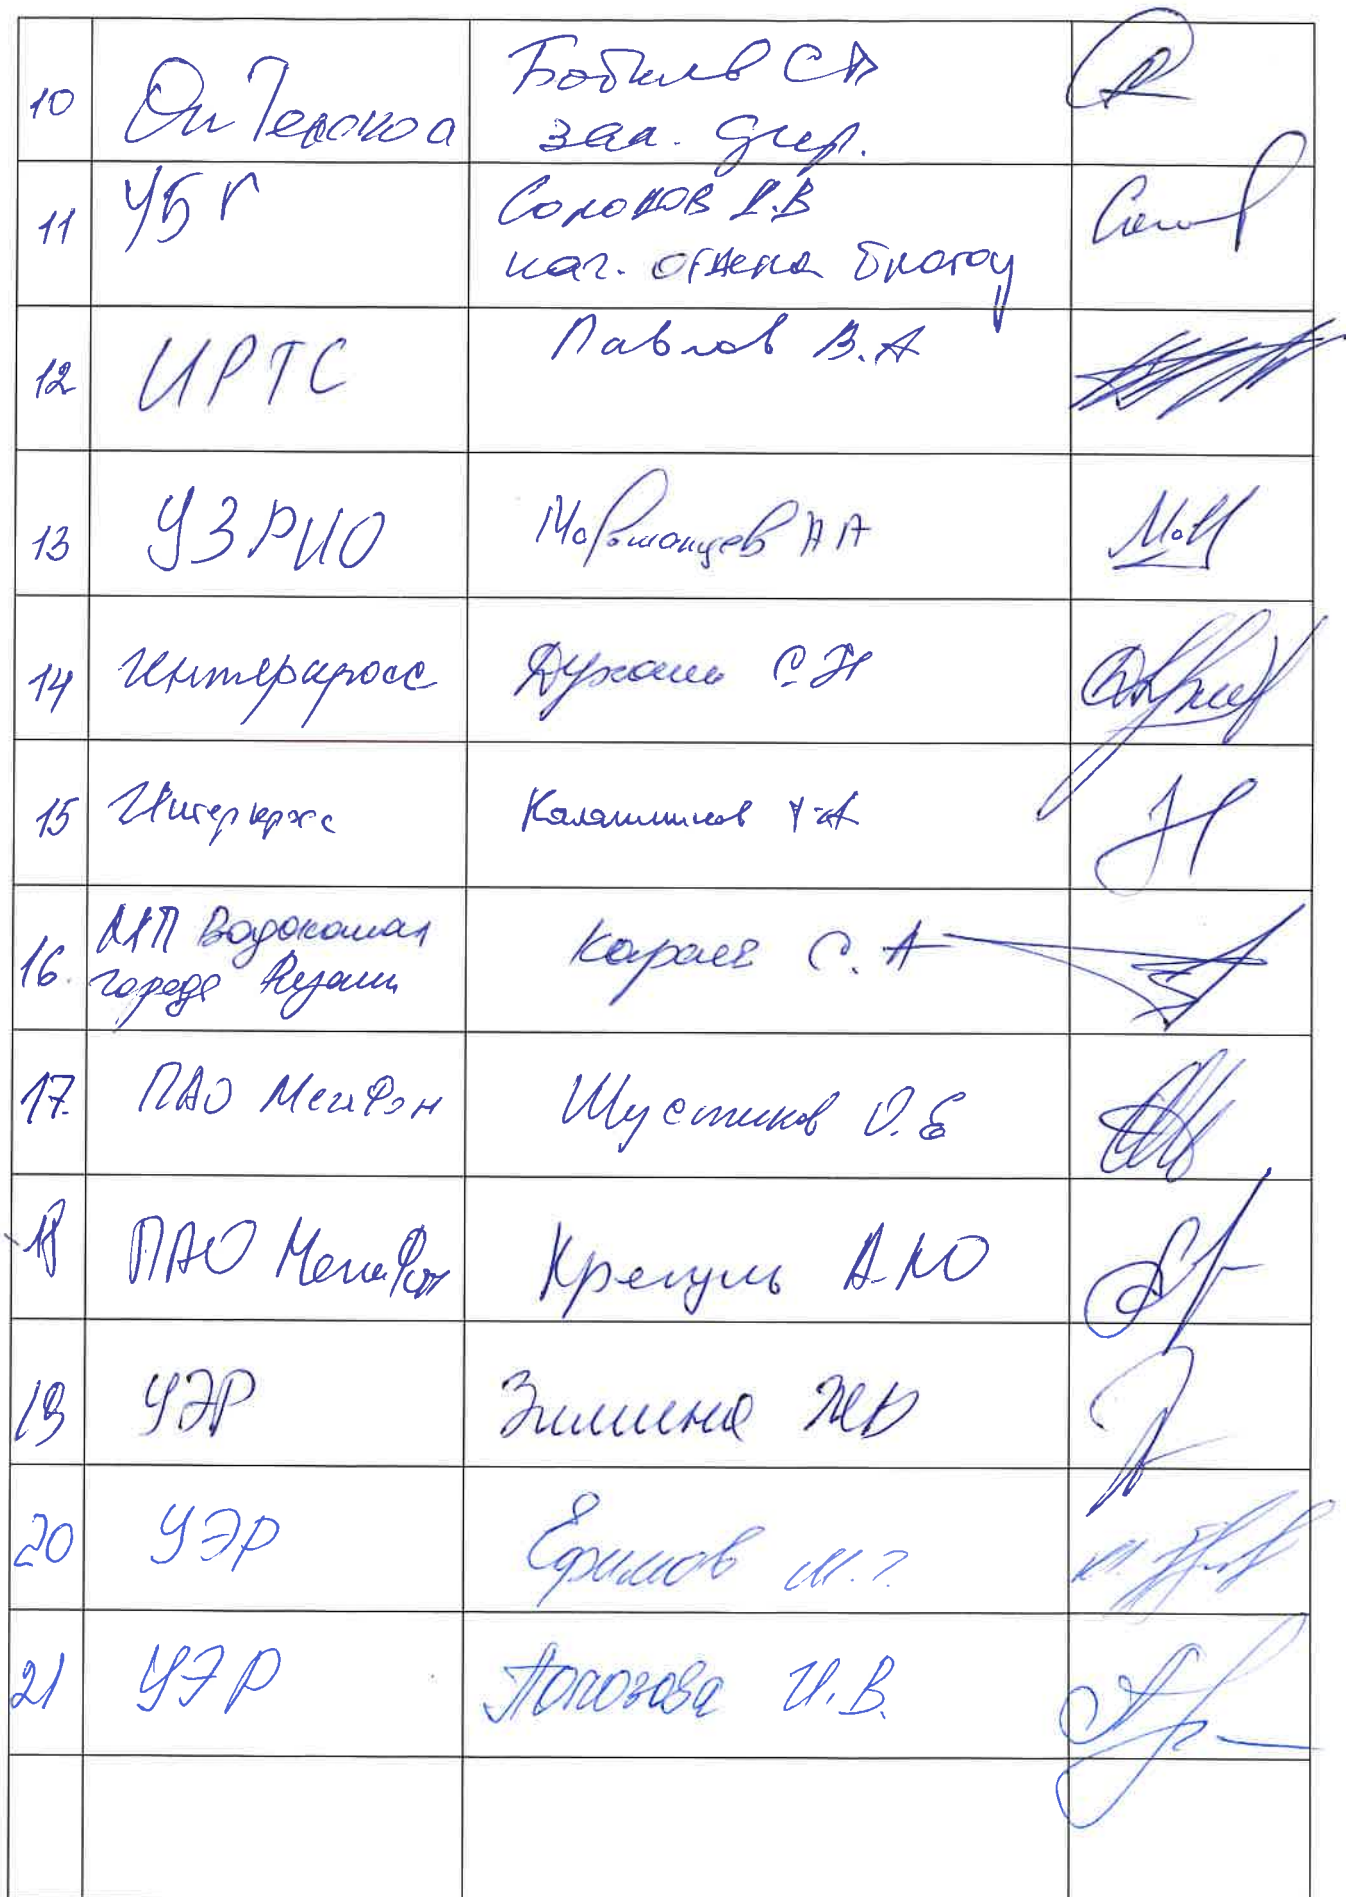 10 Он Телеком Бобылев СА
зам. дир.
11 УБГ Соколов И.В
нач. отдела благоу
12 ИРТС Павлов В.А
13 УЗРИО Моршанцев АА
14 Интеркросс Духанин С.Н
15 Интеркросс Калашников А
16. МП Водоканал Караев С.А
города Рязани
17. ПАО МегаФон Шустиков О.Е
18 ПАО МегаФон Крегуль А.Ю
19 УЭР Зимина
20 УЭР Ефимов М.Г.
21 УЭР И.В.